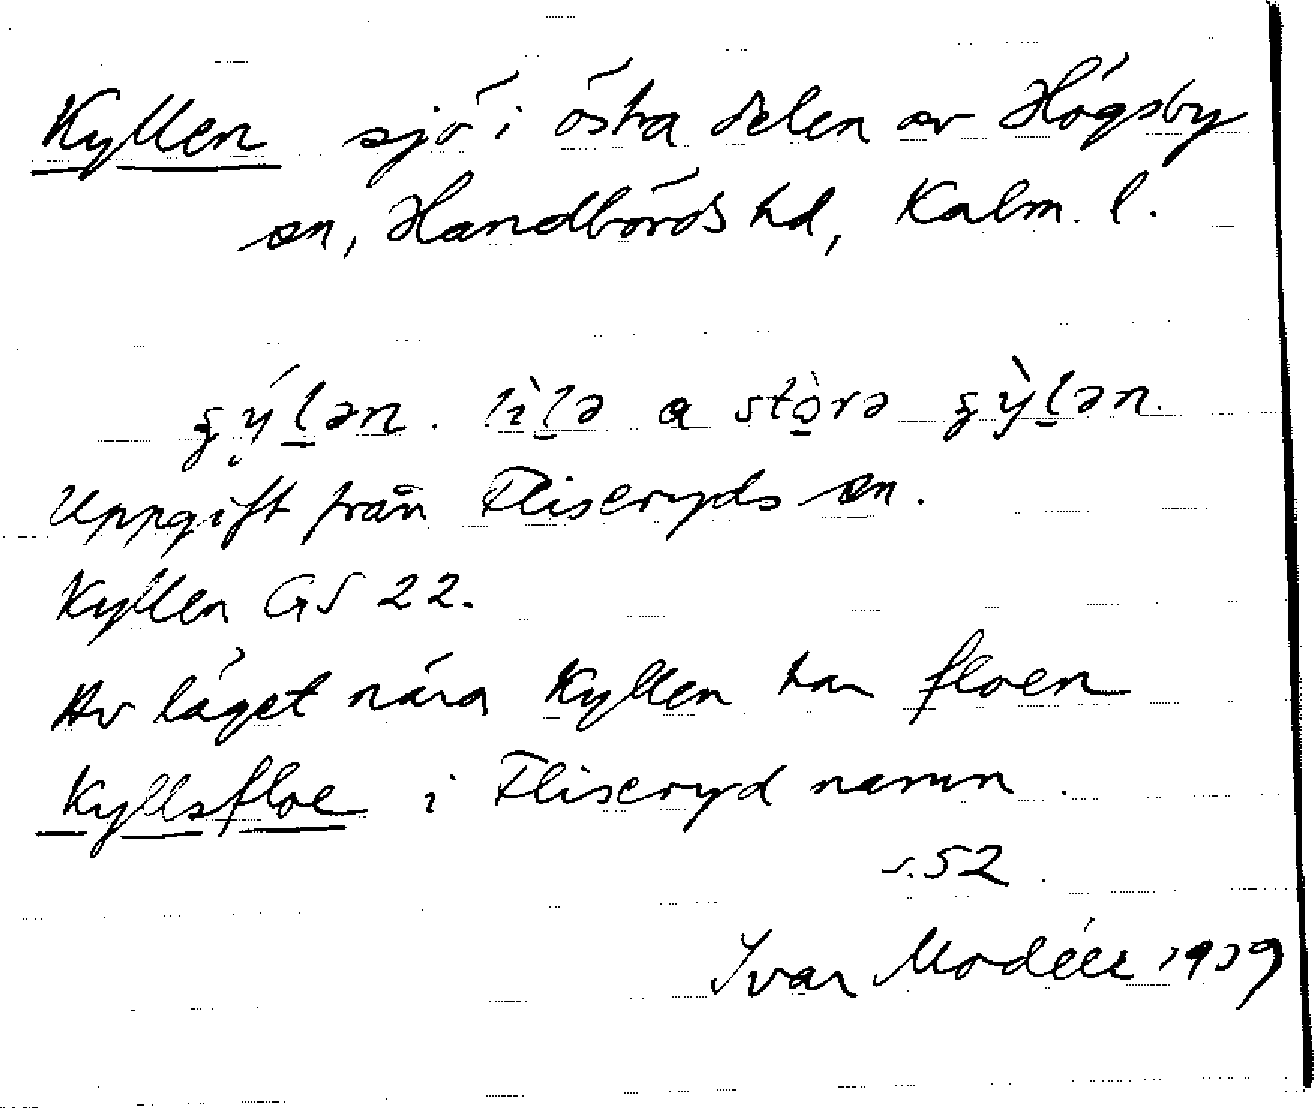 Kyllen sjö i östra delen av Högsby
sn, Handbörds hd, Kalm. l.
a
Uppgift från Fliseryds sn.
Kyllen GS 22.
Av läget nära Kyllen har floen
Kyllsfloe i Fliseryd namn.
s. 52.
Ivar Modéer 1939